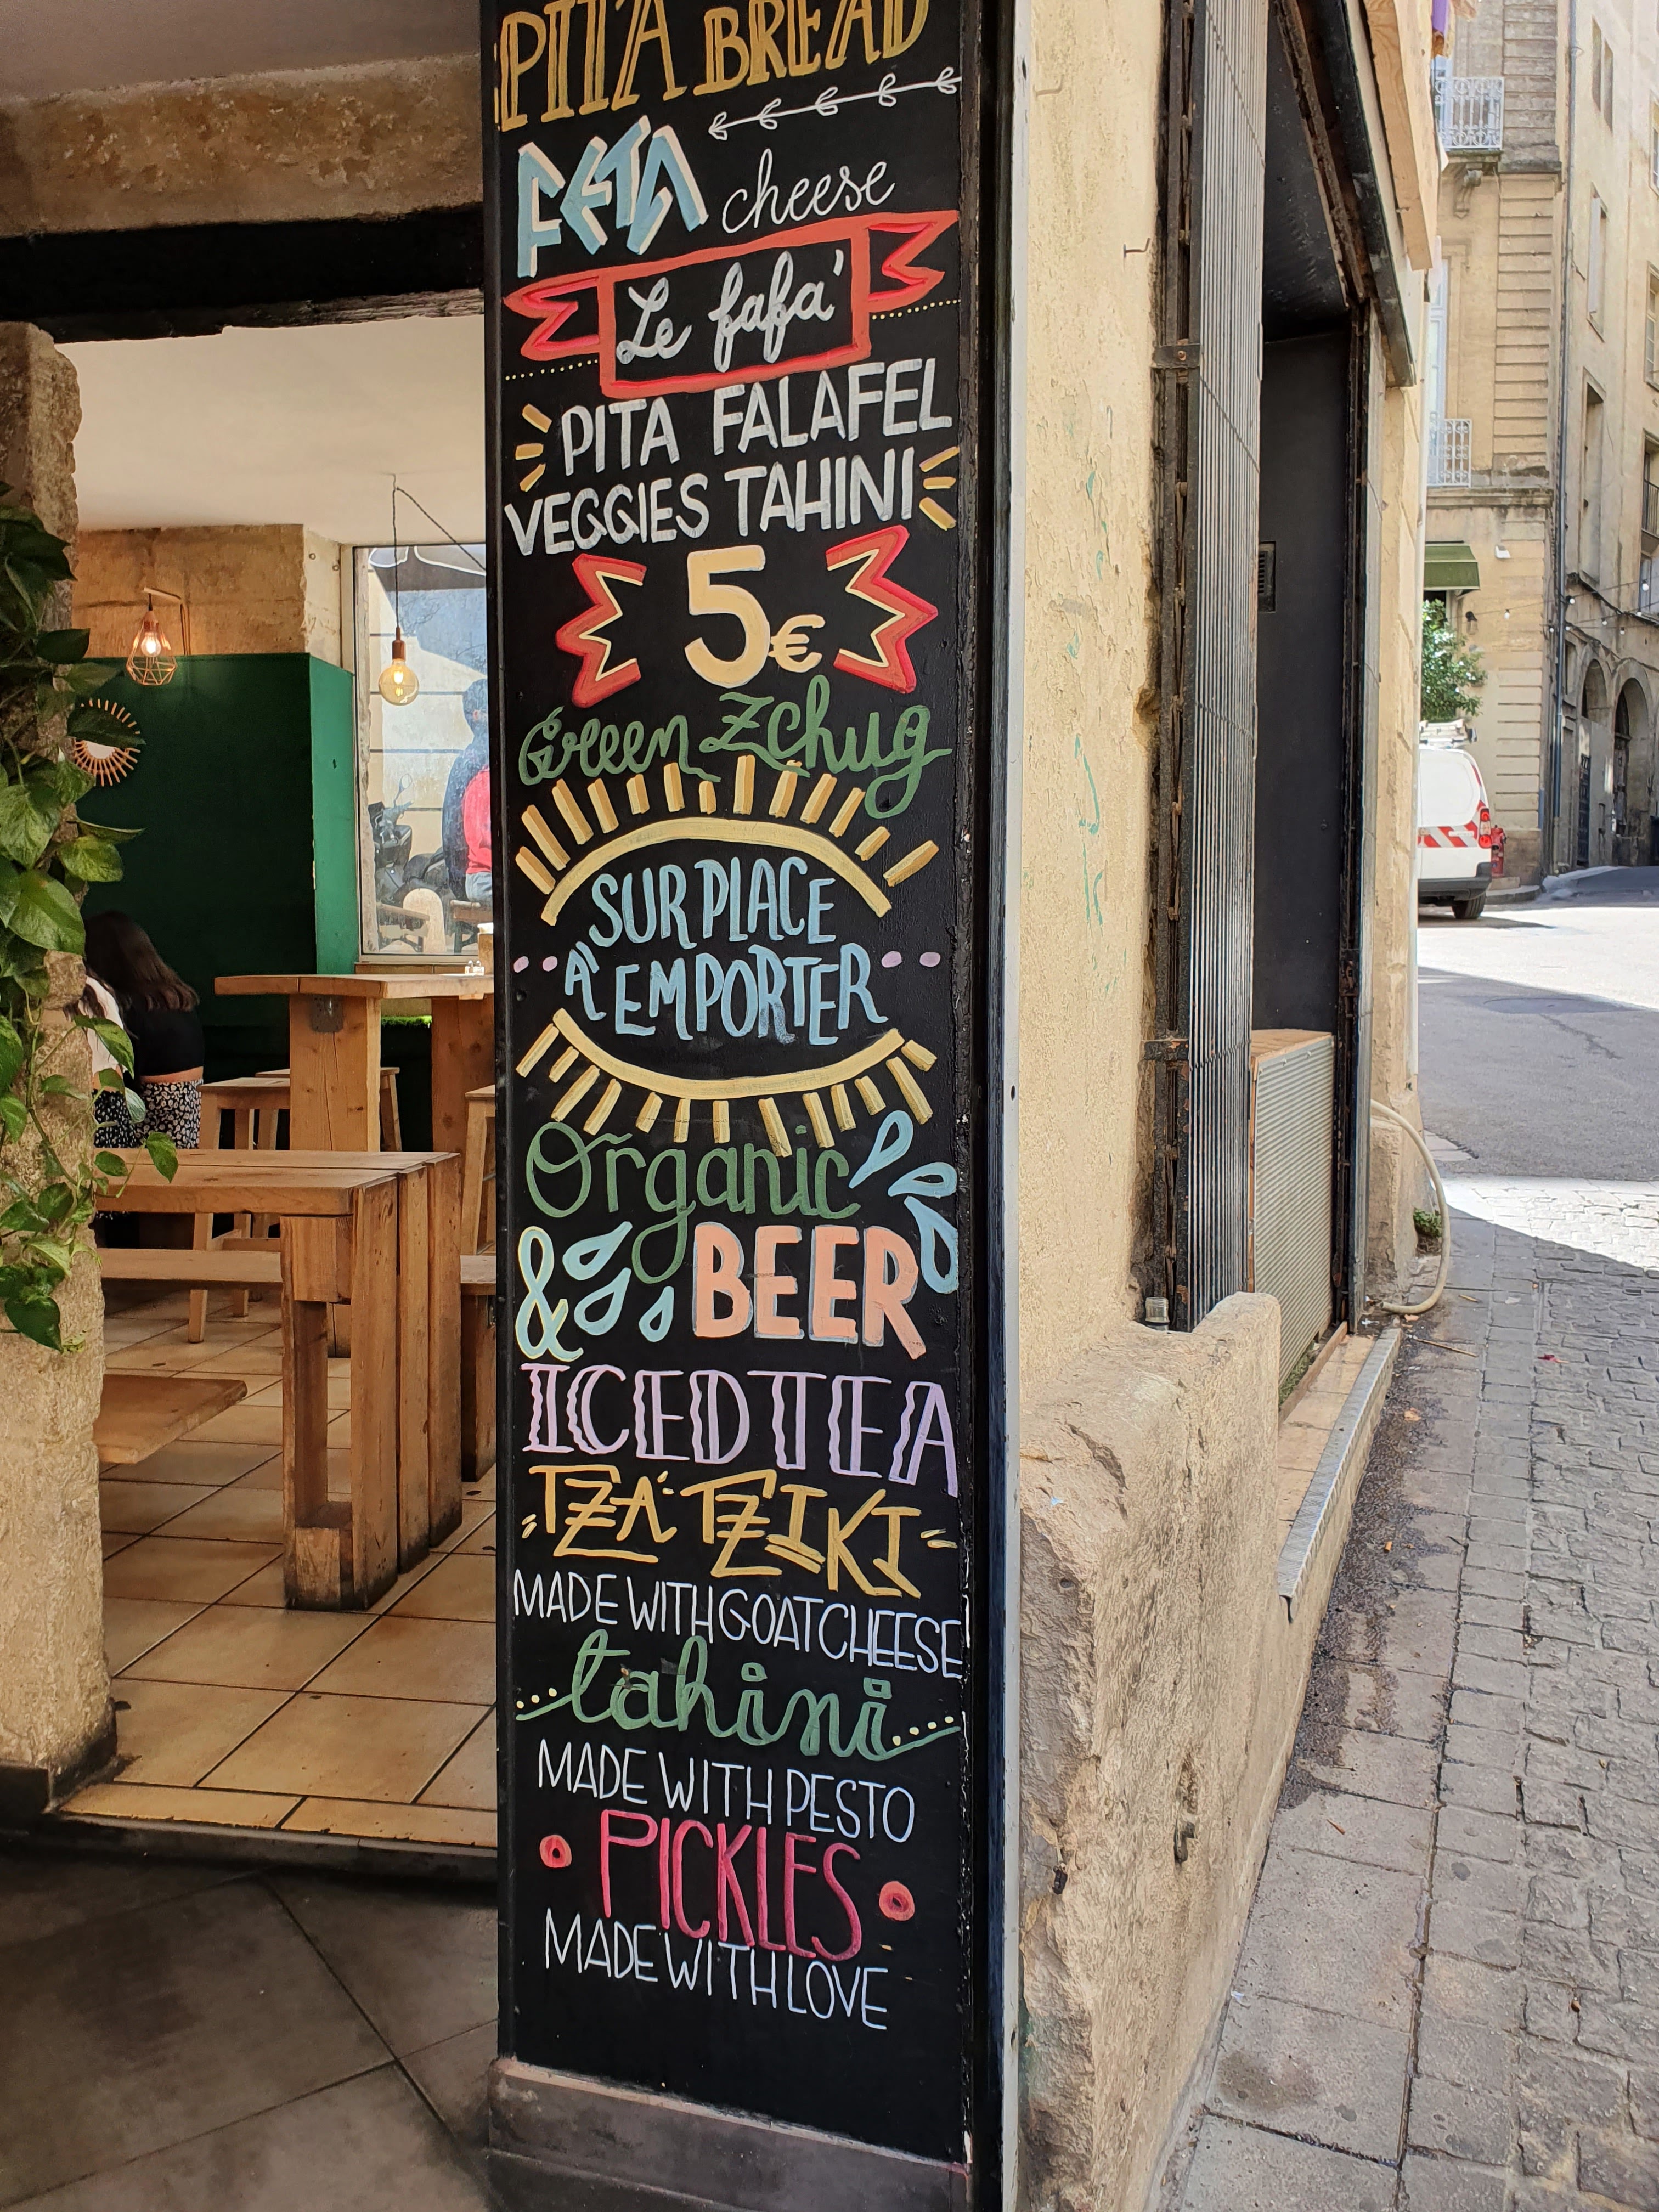 PITA BREAD
FETA cheese
Le fafa'
PITA FALAFEL
VEGGIES TAHINI
5€
Green Zchug
SUR PLACE
À EMPORTER
Organic
& BEER
ICED TEA
TZA TZIKI
MADE WITH GOAT CHEESE
tahini
MADE WITH PESTO
PICKLES
MADE WITH LOVE